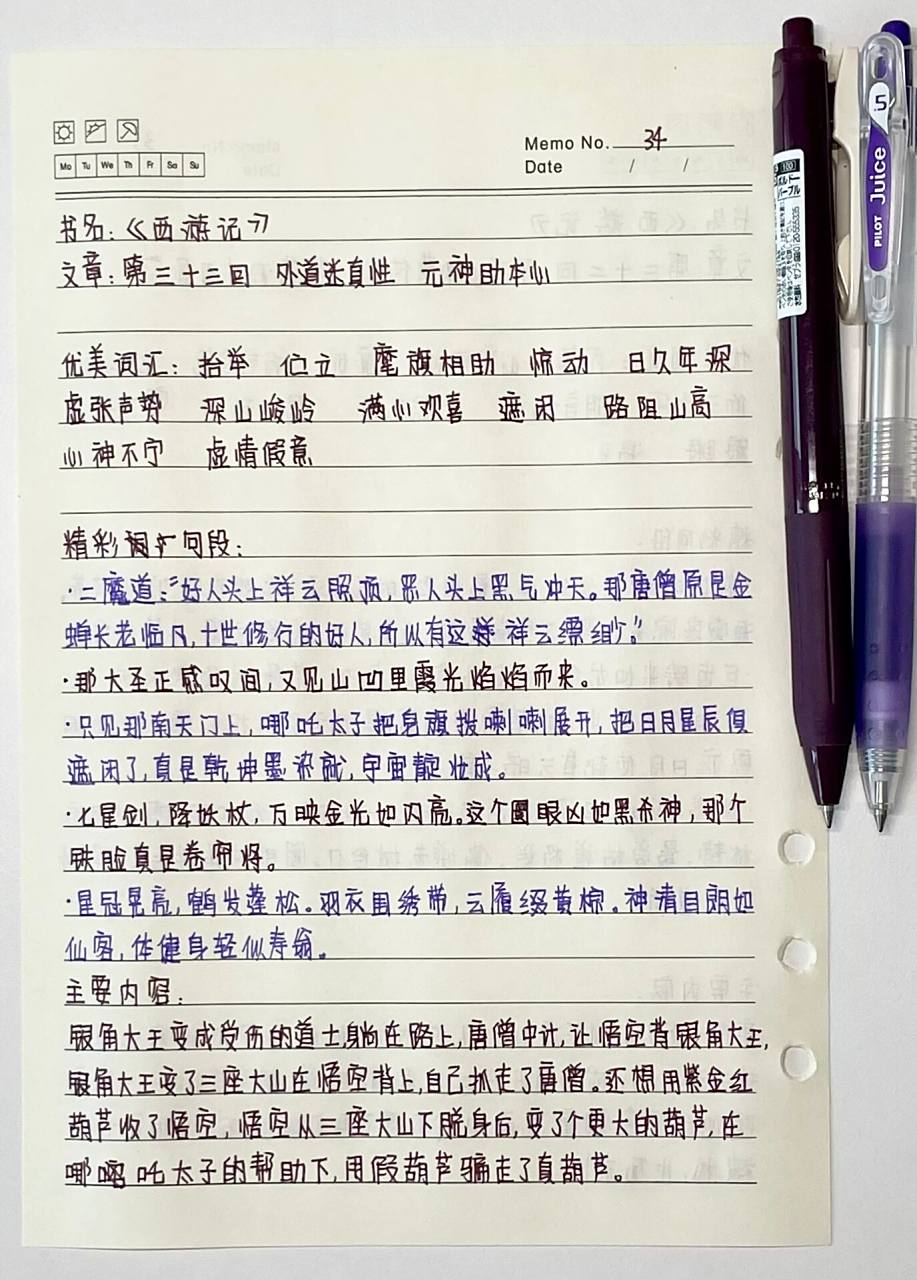 Mo Tu We Th Fr Sa Su
Memo No. 34
Date / /
书名:《西游记》
文章:第三十三回 外道迷真性 元神助本心
优美词汇: 抬举 伫立 麾旗相助 惊动 日久年深
虚张声势 深山峻岭 满心欢喜 遮闭 路阻山高
心神不宁 虚情假意
精彩词句段:
·二魔道:“好人头上祥云照顶,恶人头上黑气冲天。那唐僧原是金
蝉长老临凡,十世修行的好人,所以有这样祥云缥缈。”
·那大圣正感叹间,又见山凹里霞光焰焰而来。
·只见那南天门上,哪吒太子把皂旗拨喇喇展开,把日月星辰俱
遮闭了,真是乾坤墨染就,宇宙靛妆成。
·七星剑,降妖杖,万映金光如闪亮。这个圜眼凶如黑杀神,那个
铁脸真是卷帘将。
·星冠晃亮,鹤发蓬松。羽衣围绣带,云履缀黄棕。神清目朗如
仙客,体健身轻似寿翁。
主要内容:
银角大王变成受伤的道士躺在路上,唐僧中计,让悟空背银角大王,
银角大王变了三座大山在悟空背上,自己抓走了唐僧。还想用紫金红
葫芦收了悟空,悟空从三座大山下脱身后,变了个更大的葫芦,在
哪吒太子的帮助下,用假葫芦骗走了真葫芦。
PILOT Juice
.5